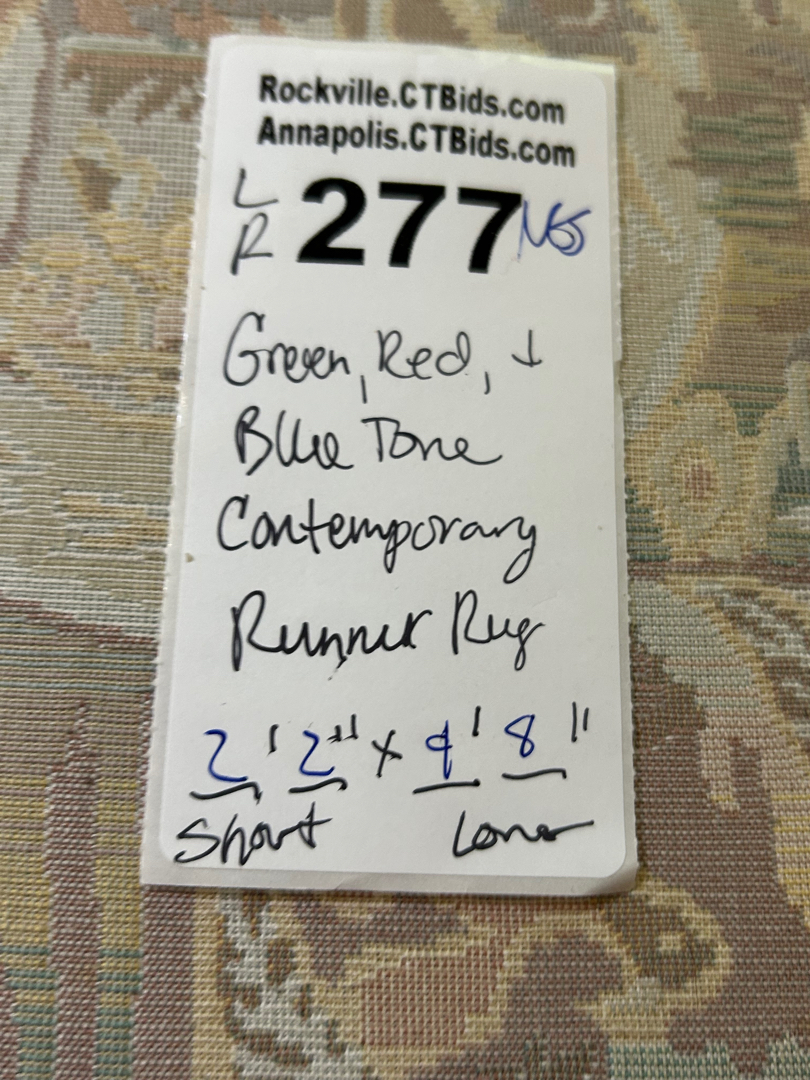 Rockville.CTBids.com
Annapolis.CTBids.com
LR 277
Green, Red, +
Blue Tone
Contemporary
Runner Rug
2' 2" x 9' 8"
Short Long